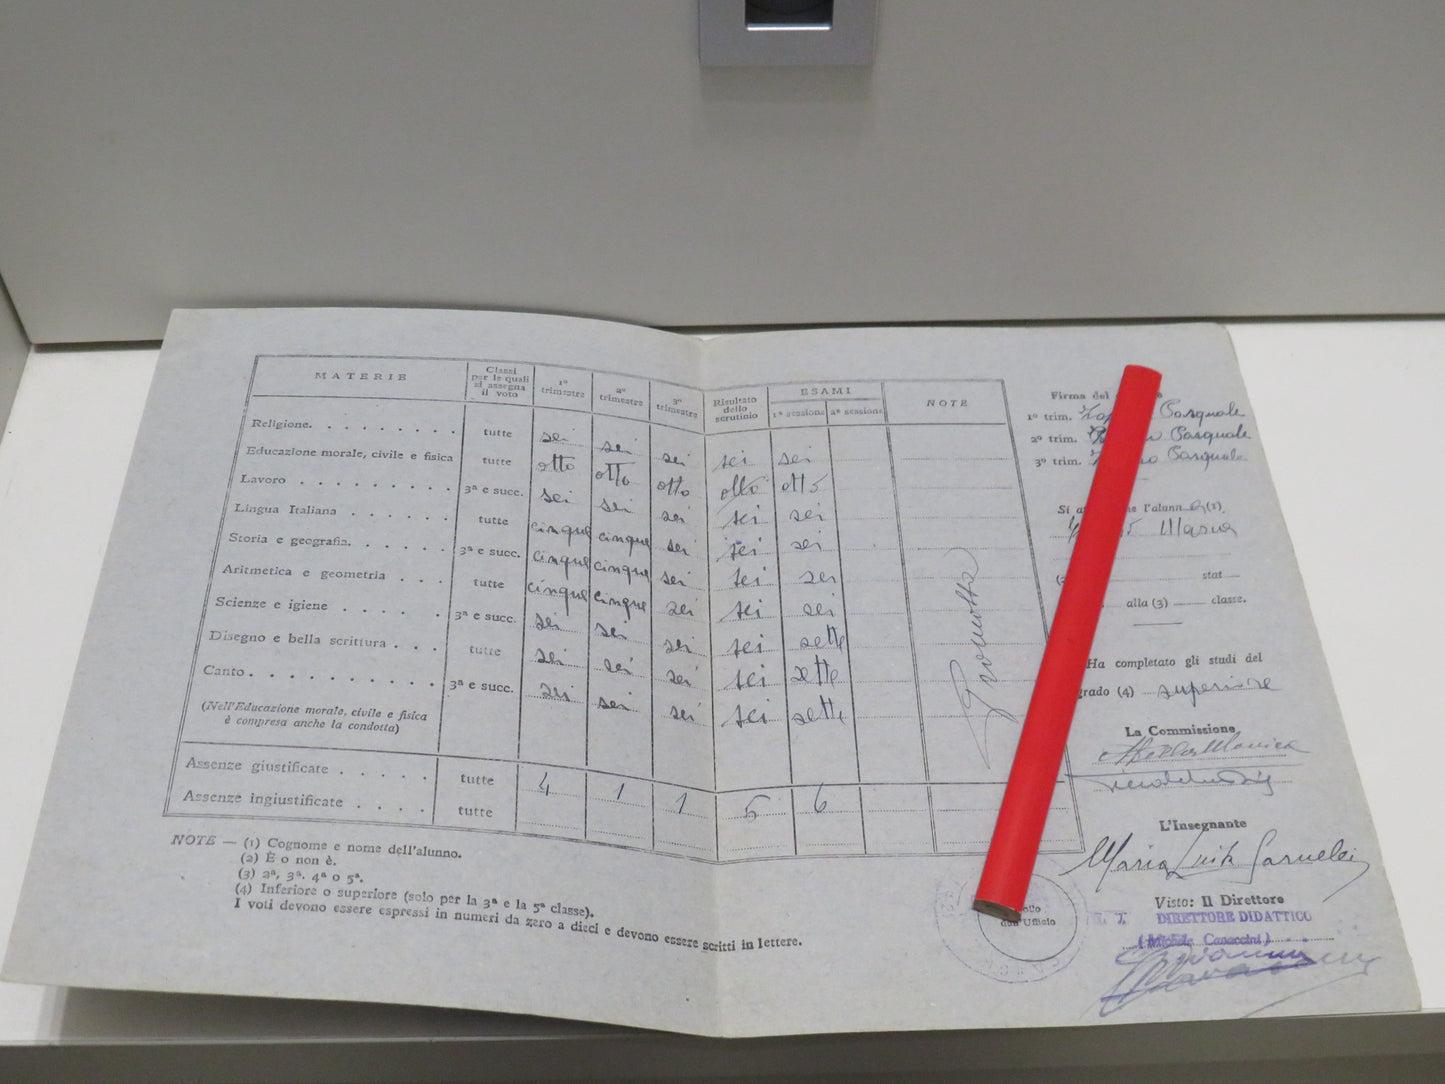 MATERIE
Classi per le quali si assegna il voto
1º trimestre
2º trimestre
3º trimestre
Risultato dello scrutinio
ESAMI
1ª sessione
2ª sessione
NOTE
Religione. tutte sei sei sei sei sei
Educazione morale, civile e fisica tutte otto otto otto otto otto
Lavoro 3ª e succ. sei sei sei sei sei
Lingua Italiana tutte cinque cinque sei sei sei
Storia e geografia. 3ª e succ. cinque cinque sei sei sei
Aritmetica e geometria tutte cinque cinque sei sei sei
Scienze e igiene 3ª e succ. sei sei sei sei sette
Disegno e bella scrittura tutte sei sei sei sei sette
Canto 3ª e succ. sei sei sei sei sette
(Nell'Educazione morale, civile e fisica
è compresa anche la condotta)
Promossa
Assenze giustificate tutte 4 1 1 5 6
Assenze ingiustificate tutte
NOTE — (1) Cognome e nome dell'alunno.
(2) È o non è.
(3) 2ª, 3ª, 4ª o 5ª.
(4) Inferiore o superiore (solo per la 3ª e la 5ª classe).
I voti devono essere espressi in numeri da zero a dieci e devono essere scritti in lettere.
Firma del
1º trim. Pasquale
2º trim. Pasquale
3º trim. Pasquale
Si l'alunna (1).
Maria
stat
alla (3) classe.
Ha completato gli studi del
grado (4) superiore
La Commissione
L'Insegnante
Maria
Visto: Il Direttore
DIRETTORE DIDATTICO
(Michele Canaccini)
dell'Ufficio